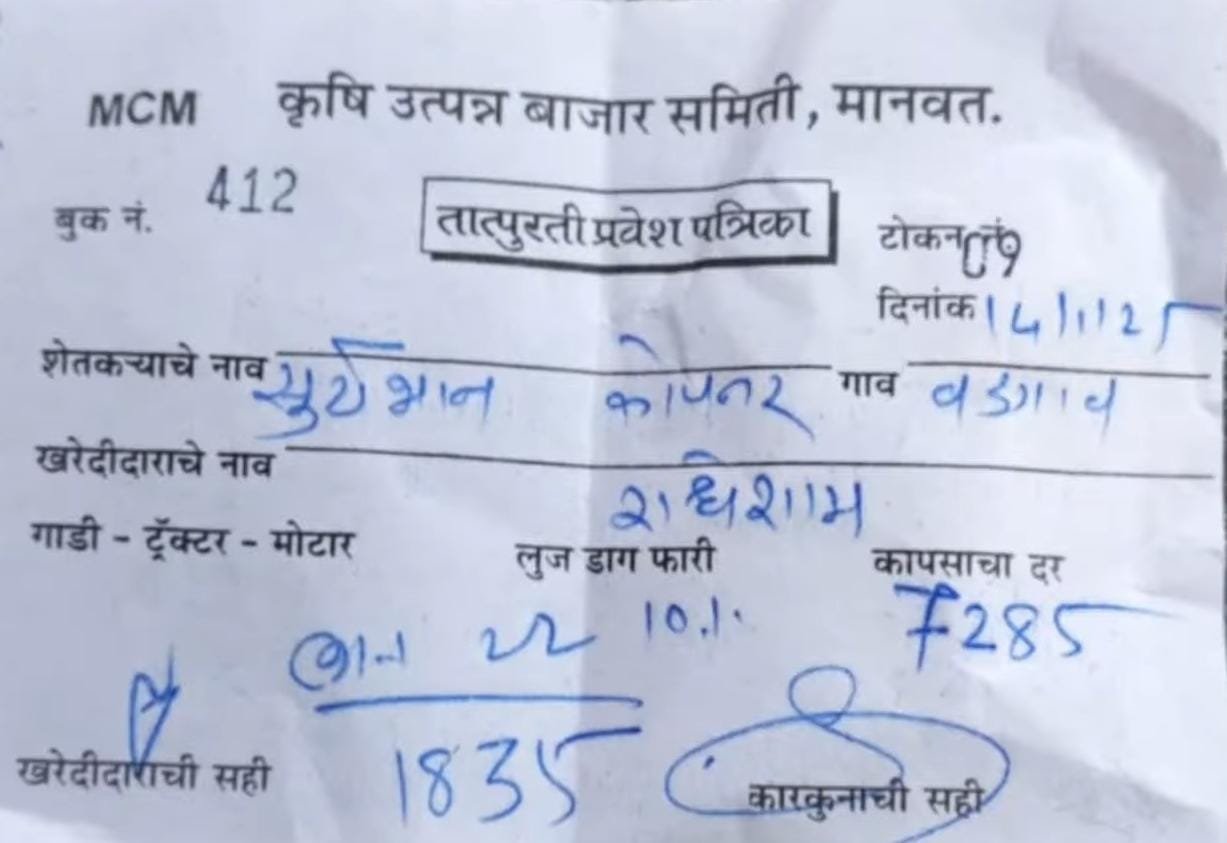 MCM कृषि उत्पन्न बाजार समिती, मानवत.
बुक नं. 412 तात्पुरती प्रवेश पत्रिका टोकन नं 09
दिनांक 14/1/25
शेतकऱ्याचे नाव सुर्यभान गाव वडगाव
खरेदीदाराचे नाव राधेशाम
गाडी - ट्रॅक्टर - मोटार लुज डाग फारी कापसाचा दर
10.1. 7285
1835
खरेदीदाराची सही कारकुनाची सही